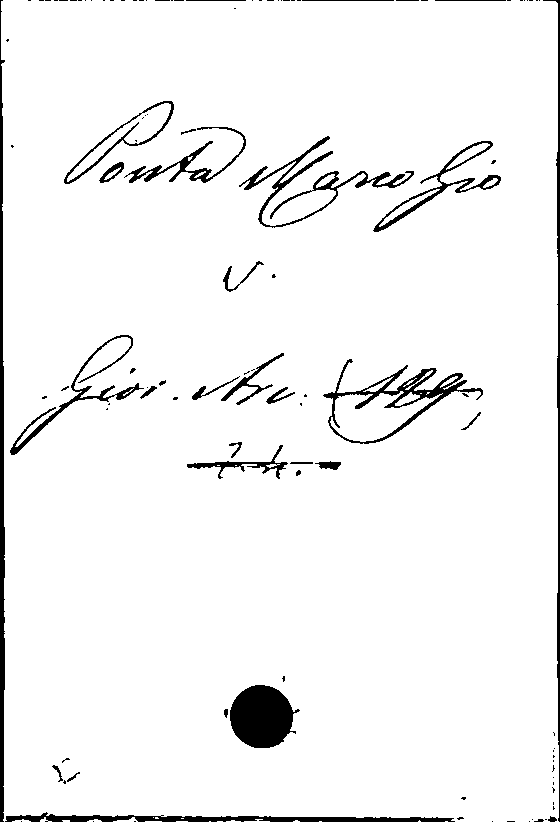 Ponta Marco Gio
v.
Giov. Arc. (189)
74.